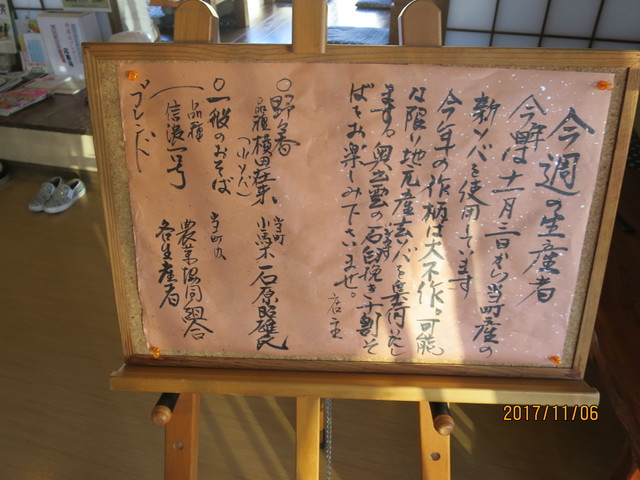 今週の生産者
今年は十一月三日から当町産の
新ソバを使用しています
今年の作柄は大不作。可能
な限り地元産玄ソバを案内いたし
まする奥出雲の石臼挽き十割そ
ばをお楽しみ下さいませ。
店主
○野の香
品種 横田在来
(小ソバ)
当町
小馬木 石原昭雄氏
○一般のおそば
品種 信濃一号
ブレンド
当町内
農業協同組合
各生産者
2017/11/06